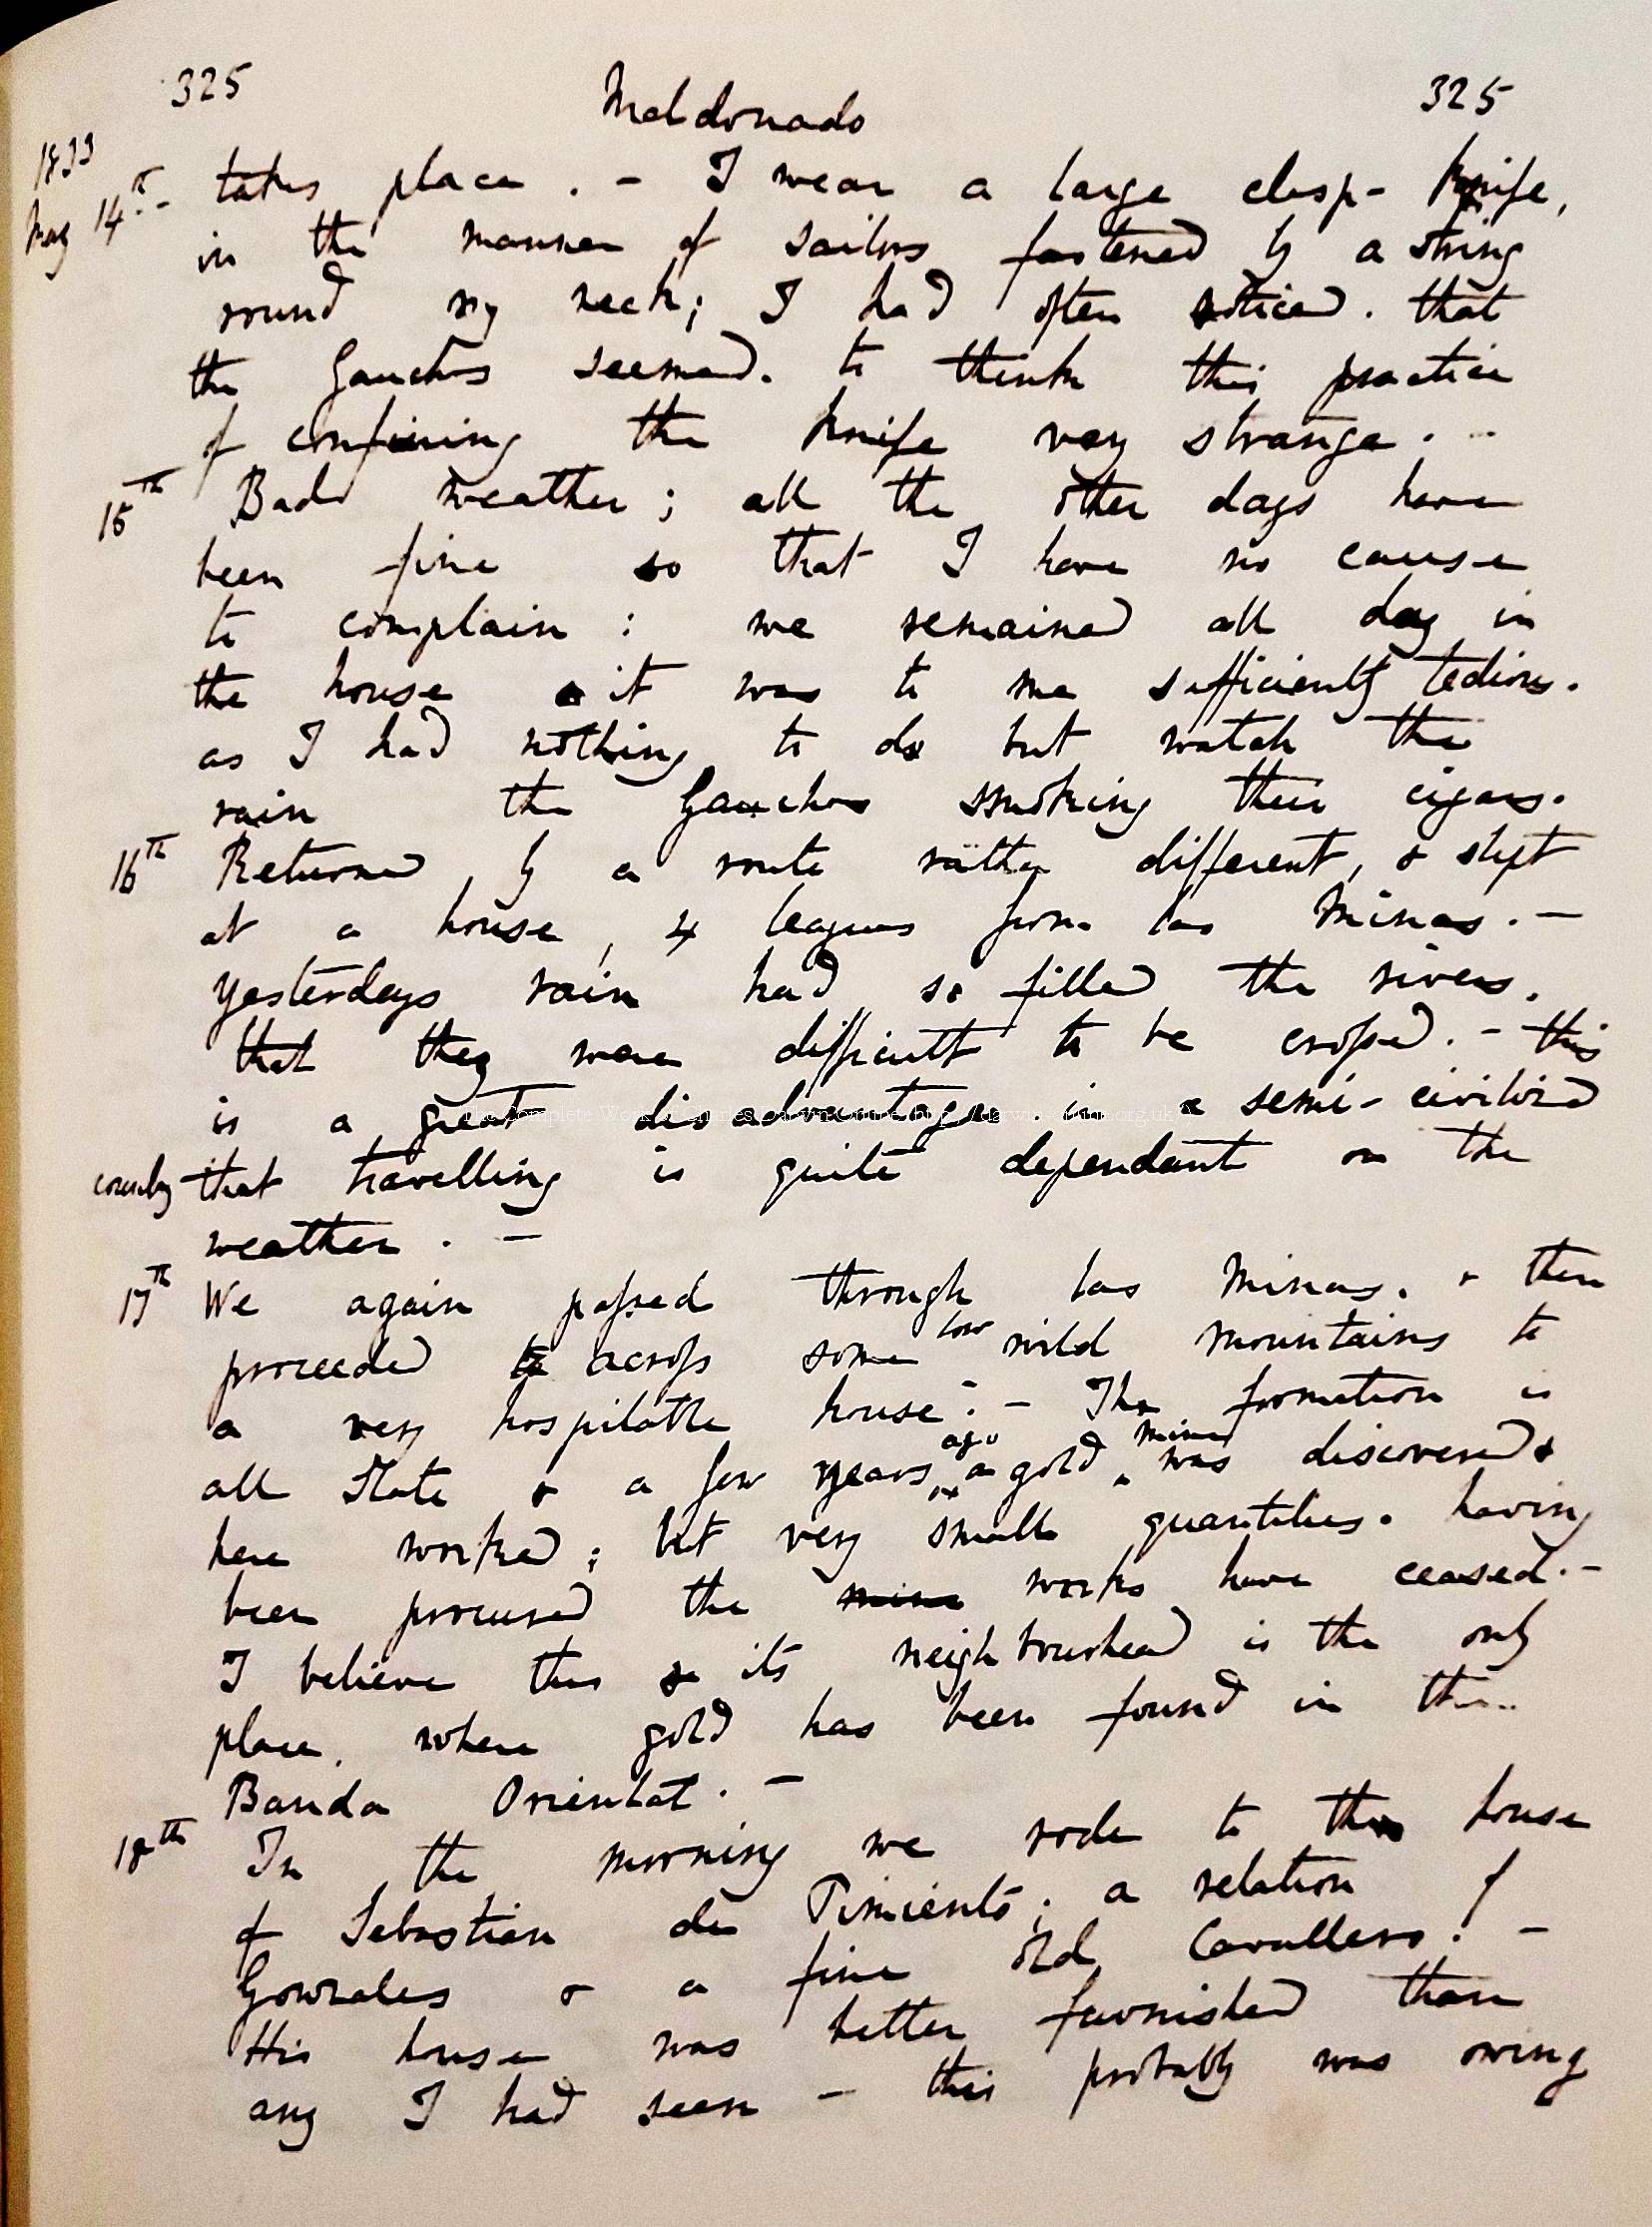 325 Maldonado 325
1833
May 14th.- takes place. - I wear a large clasp-knife,
in the manner of sailors fastened by a string
round my neck; I had often noticed. that
the Gauchos seemed. to think this practice
of confining the knife very strange. -
15th Bad weather; all the other days have
been fine so that I have no cause
to complain: we remained all day in
the house & it was to me sufficiently tedious.
as I had nothing to do but watch the
rain the Gauchos smoking their cigars.
16th Returned, by a route rather different, & slept
at a house, 4 leagues from las Minas. -
Yesterdays rain had so filled the rivers.
that they were difficult to be crossed. - this
is a great disadvantage in a semi-civilized
country that travelling is quite dependant on the
weather. -
17th We again passed through las Minas. & then
proceeded to across some low wild mountains to
a very hospitable house. - The formation is
all Slate & a few years ago a gold mine was discovered &
here worked; but very small quantities. having
been procured the mine works have ceased. -
I believe this & its neighbourhead is the only
place. where gold has been found in the
Banda Oriental. -
18th In the morning we rode to the house
of Sebastian de Pimiento; a relation of
Gonzales & a fine old Cavallero! -
His house was better furnished than
any I had seen - this probably was owing